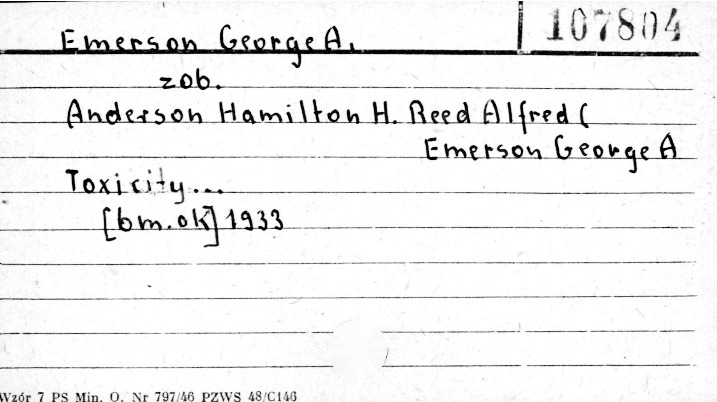 107804
Emerson George A.
zob.
Anderson Hamilton H. Reed Alfred C
Emerson George A
Toxicity...
[bm. ok] 1933
Wzór 7 PS Min. O. Nr 797/46 PZWS 48/C146